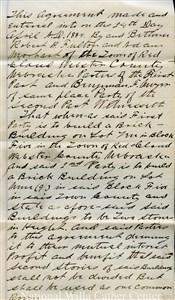 This agreement made and
entered into on this 14th Day
April A.D. 1884 By and Between
Robert B. Fulton and
of the Town of Red
Cloud Webster County,
Nebraska Parties of the First
Part and Benjamin F. Mizer
of same place Party of the
Second Part Witnesseth
That whereas said First
Party is to build a Brick
Building on Lot No.
Five in the Town of Red Cloud
Webster County Nebraska
and said 2d Party is to build
a Brick Building on Lot
in said Block Five
in said Town County and
State as aforesaid said
Buildings to be Two stories
in Height, and said Parties
to this agreement deeming
it to their mutual interest
Profit and benefit that said
Second stories of said Buildings
shall not be divided But
shall be used as one common
Room